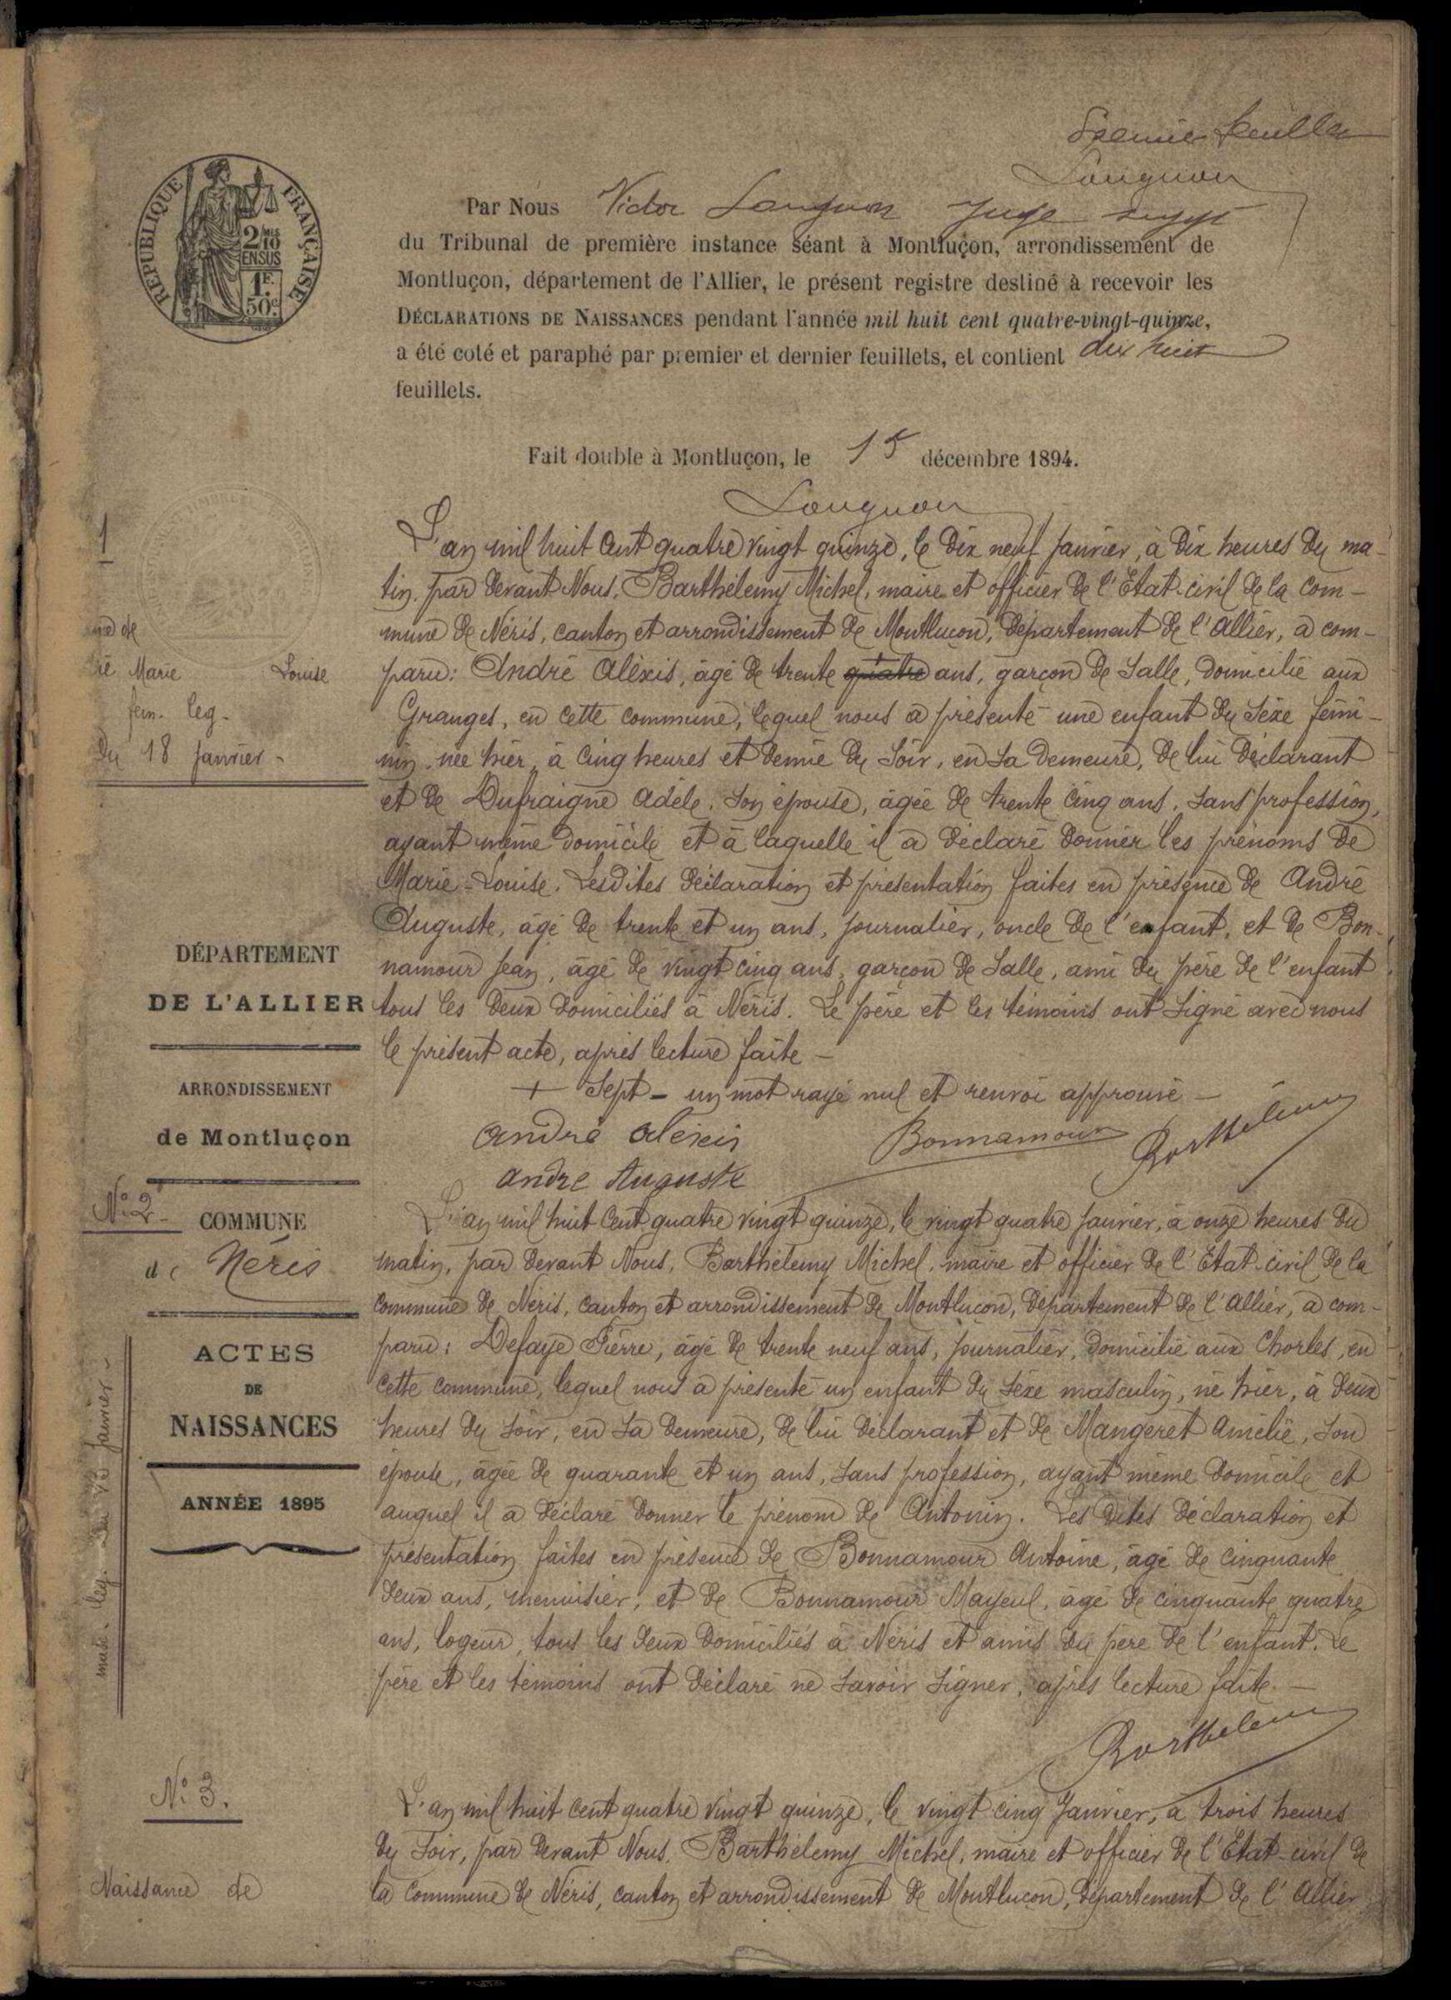 Premier feuillet
Lougnon
RÉPUBLIQUE FRANÇAISE
2/10 EN SUS
1F. 50c
Par Nous Victor Lougnon Juge suppt
du Tribunal de première instance séant à Montluçon, arrondissement de
Montluçon, département de l'Allier, le présent registre destiné à recevoir les
DÉCLARATIONS DE NAISSANCES pendant l'année mil huit cent quatre-vingt-quinze,
a été coté et paraphé par premier et dernier feuillets, et contient dix huit
feuillets.
Fait double à Montluçon, le 15 décembre 1894.
Lougnon
1
Marie Louise
fém. leg.
Du 18 Janvier -
L'an mil huit cent quatre vingt quinze, le dix neuf Janvier, à dix heures du ma-
tin, par devant Nous, Barthélemy Michel, maire et officier de l'Etat-civil de la com-
mune de Néris, canton et arrondissement de Montluçon, département de l'Allier, a com-
paru: André Alexis, âgé de trente + quatre ans, garçon de Salle, domicilié aux
Granges, en cette commune, lequel nous a présenté une enfant du Sexe fémi-
nin, née hier, à cinq heures et demie du Soir, en sa demeure, de lui déclarant
et de Dufraigne Adèle, son épouse, âgée de trente cinq ans, sans profession,
ayant même domicile et à laquelle il a déclaré donner les prénoms de
Marie-Louise. Lesdites déclaration et présentation faites en présence de André
Auguste, âgé de trente et un ans, journalier, oncle de l'enfant, et de Bon-
namour Jean, âgé de vingt cinq ans, garçon de Salle, ami du père de l'enfant
tous les deux domiciliés à Néris. Le père et les témoins ont signé avec nous
le présent acte, après lecture faite -
+ Sept - un mot rayé nul et renvoi approuvé -
André Alexis Bonnamour Barthélemy
andre Auguste
DÉPARTEMENT
DE L'ALLIER
ARRONDISSEMENT
de Montluçon
COMMUNE
de Néris
ACTES
DE
NAISSANCES
ANNÉE 1895
N° 2
masc. leg. Du 23 Janvier -
L'an mil huit cent quatre vingt quinze, le vingt quatre Janvier, à onze heures du
matin, par devant Nous, Barthélemy Michel, maire et officier de l'Etat-civil de la
commune de Néris, canton et arrondissement de Montluçon, département de l'Allier, a com-
paru: Defaye Pierre, âgé de trente neuf ans, journalier, domicilié aux Chorles, en
cette commune, lequel nous a présenté un enfant du Sexe masculin, né hier, à deux
heures du soir, en sa demeure, de lui déclarant et de Mangeret Amélie, son
épouse, âgée de quarante et un ans, sans profession, ayant même domicile et
auquel il a déclaré donner le prénom de Antonin. Les dites déclaration et
présentation faites en présence de Bonnamour Antoine, âgé de cinquante
deux ans, menuisier, et de Bonnamour Mayeul, âgé de cinquante quatre
ans, logeur, tous les deux domiciliés à Néris et amis du père de l'enfant. Le
père et les témoins ont déclaré ne savoir signer, après lecture faite. -
Barthélemy
N° 3.
Naissance de
L'an mil huit cent quatre vingt quinze, le vingt cinq Janvier, à trois heures
du Soir, par devant Nous, Barthélemy Michel, maire et officier de l'Etat-civil de
la Commune de Néris, canton et arrondissement de Montluçon, département de l'Allier